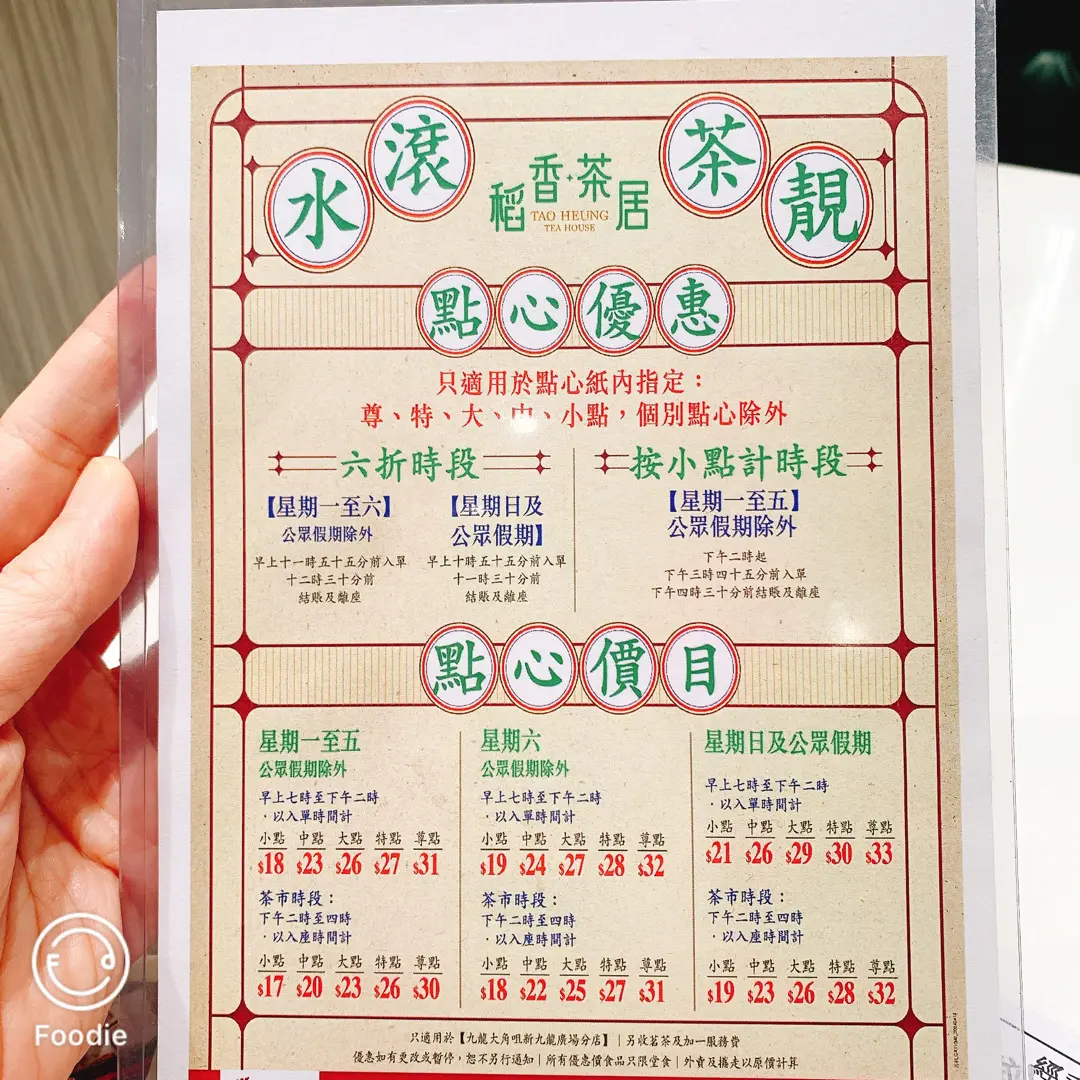 水滾 茶靚
稻香茶居
TAO HEUNG
TEA HOUSE
點心優惠
只適用於點心紙內指定：
尊、特、大、中、小點，個別點心除外
六折時段
【星期一至六】
公眾假期除外
早上十一時五十五分前入單
十二時三十分前
結賬及離座
【星期日及
公眾假期】
早上十時五十五分前入單
十一時三十分前
結賬及離座
按小點計時段
【星期一至五】
公眾假期除外
下午二時起
下午三時四十五分前入單
下午四時三十分前結賬及離座
點心價目
星期一至五
公眾假期除外
早上七時至下午二時
·以入單時間計
小點 中點 大點 特點 尊點
$18 $23 $26 $27 $31
茶市時段：
下午二時至四時
·以入座時間計
小點 中點 大點 特點 尊點
$17 $20 $23 $26 $30
星期六
公眾假期除外
早上七時至下午二時
·以入單時間計
小點 中點 大點 特點 尊點
$19 $24 $27 $28 $32
茶市時段：
下午二時至四時
·以入座時間計
小點 中點 大點 特點 尊點
$18 $22 $25 $27 $31
星期日及公眾假期
早上七時至下午二時
·以入單時間計
小點 中點 大點 特點 尊點
$21 $26 $29 $30 $33
茶市時段：
下午二時至四時
·以入座時間計
小點 中點 大點 特點 尊點
$19 $23 $26 $28 $32
只適用於【九龍大角咀新九龍廣場分店】｜另收茗茶及加一服務費
優惠如有更改或暫停，恕不另行通知｜所有優惠價食品只限堂食｜外賣及攜走以原價計算
Foodie